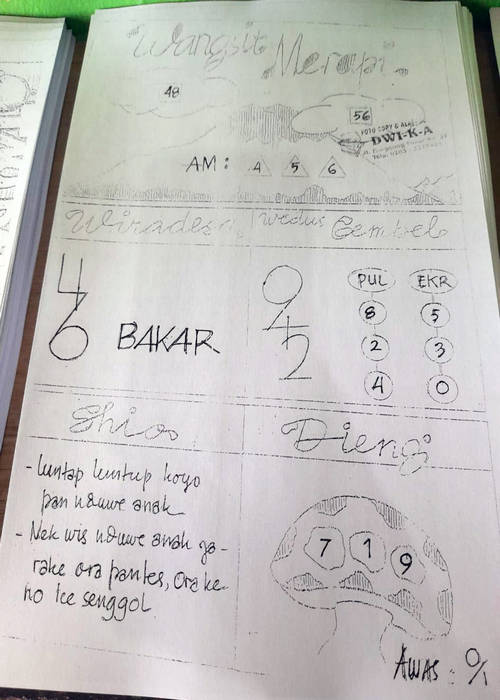 Wangsit Merapi
48
56
FOTO COPY & ALAT
DWI-K-A
AM: 4 5 6
Wiradesa
Wedus Gembel
4
6
BAKAR
9
4
2
PUL EKR
8 5
2 3
4 0
Shio
- luntap luntup koyo
pan nduwe anak
- Nek wis nduwe anak ga-
rake ora pantes, ora ke-
no
senggol
Dieng
7 1 9
AWAS :